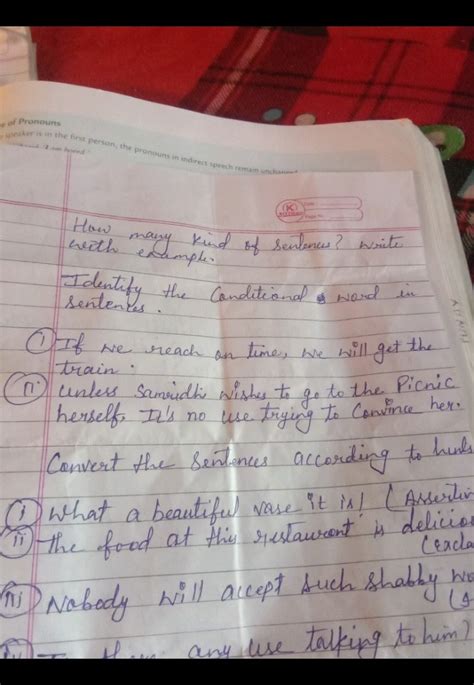 of Pronouns
speaker is in the first person, the pronouns in indirect speech remain unchanged
How many kind of sentences? write
with example.
Identify the Conditional word in
sentences.
i If we reach on time, we will get the
train.
ii unless Samridhi wishes to go to the Picnic
herself, It's no use trying to Convince her.
Convert the Sentences according to
i What a beautiful vase it is! (Assertiv
ii the food at this restaurant is delicio
(excla
iii Nobody will accept such shabby wo
(A
any use talking to him?